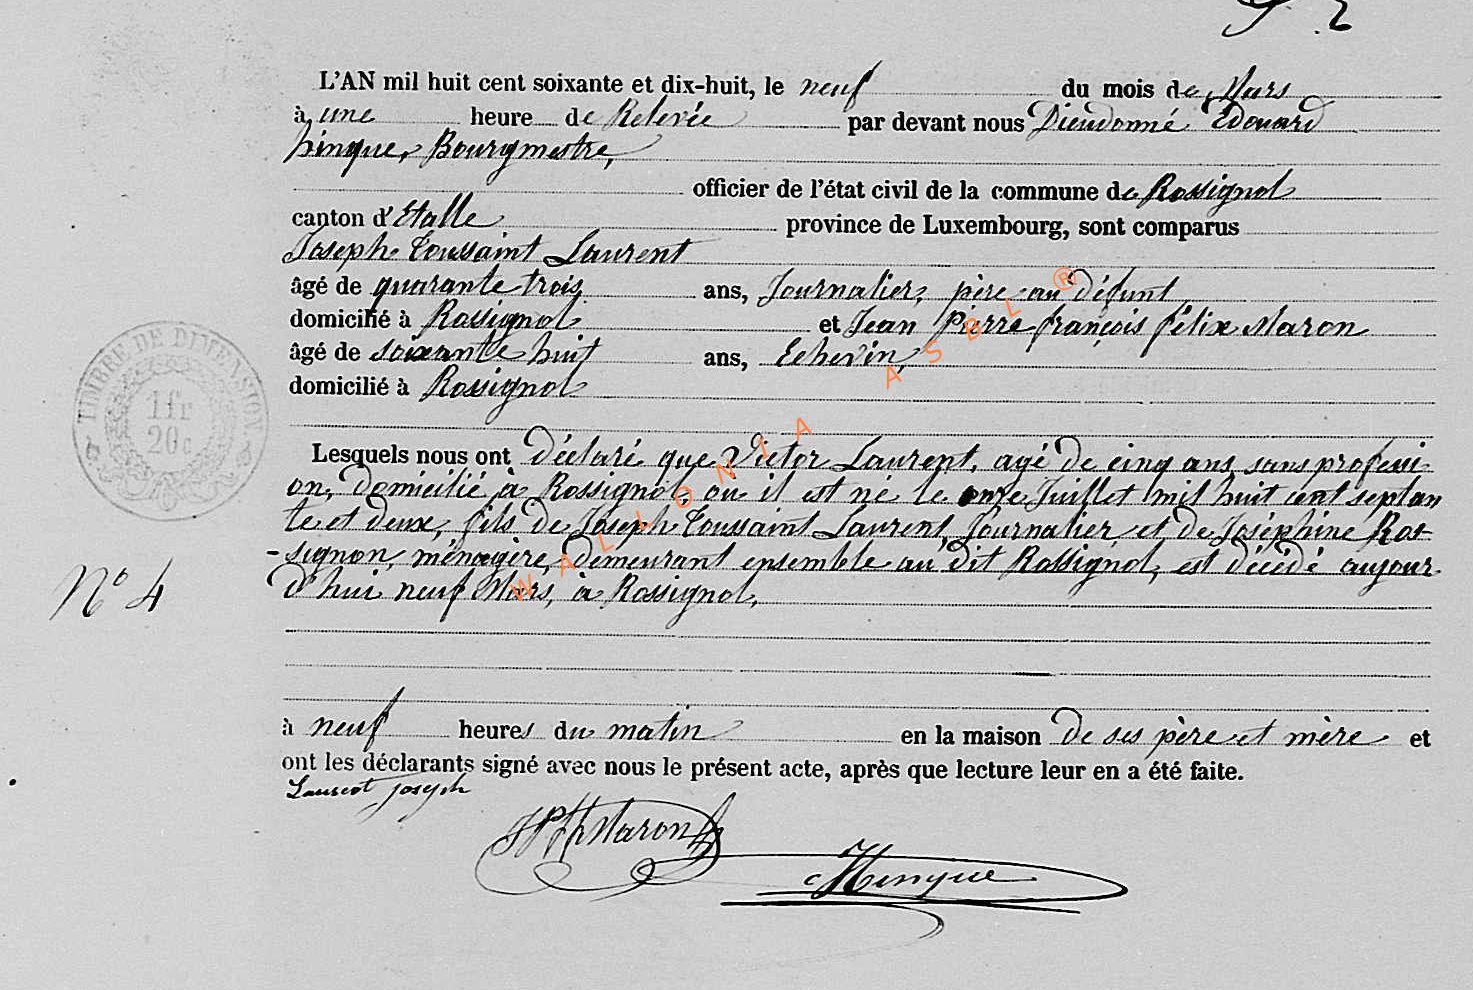 L'AN mil huit cent soixante et dix-huit, le neuf du mois de Mars
à une heure de Relevée par devant nous Dieudonné Edouard
hinque, Bourgmestre,
officier de l'état civil de la commune de Rossignol
canton d'Etalle province de Luxembourg, sont comparus
Joseph Toussaint Laurent
âgé de quarante trois ans, Journalier, père au défunt
domicilié à Rossignol et Jean Pierre françois félix Maron
âgé de soixante huit ans, Echevin,
domicilié à Rossignol
Lesquels nous ont déclaré que Victor Laurent, agé de cinq ans, sans professi-
on, domicilié à Rossignol, ou il est né le onze Juillet mil huit cent septan
te et deux, fils de Joseph Toussaint Laurent, Journalier, et de Joséphine Ros-
-signon, ménagère, demeurant ensemble au dit Rossignol, est décédé aujour
d'hui neuf Mars, à Rossignol,
à neuf heures du matin en la maison de ses père et mère et
ont les déclarants signé avec nous le présent acte, après que lecture leur en a été faite.
Laurent Joseph
Maron
Hinque
N° 4
TIMBRE DE DIMENSION
1 fr
20 c
WALLONIA ASBL ®